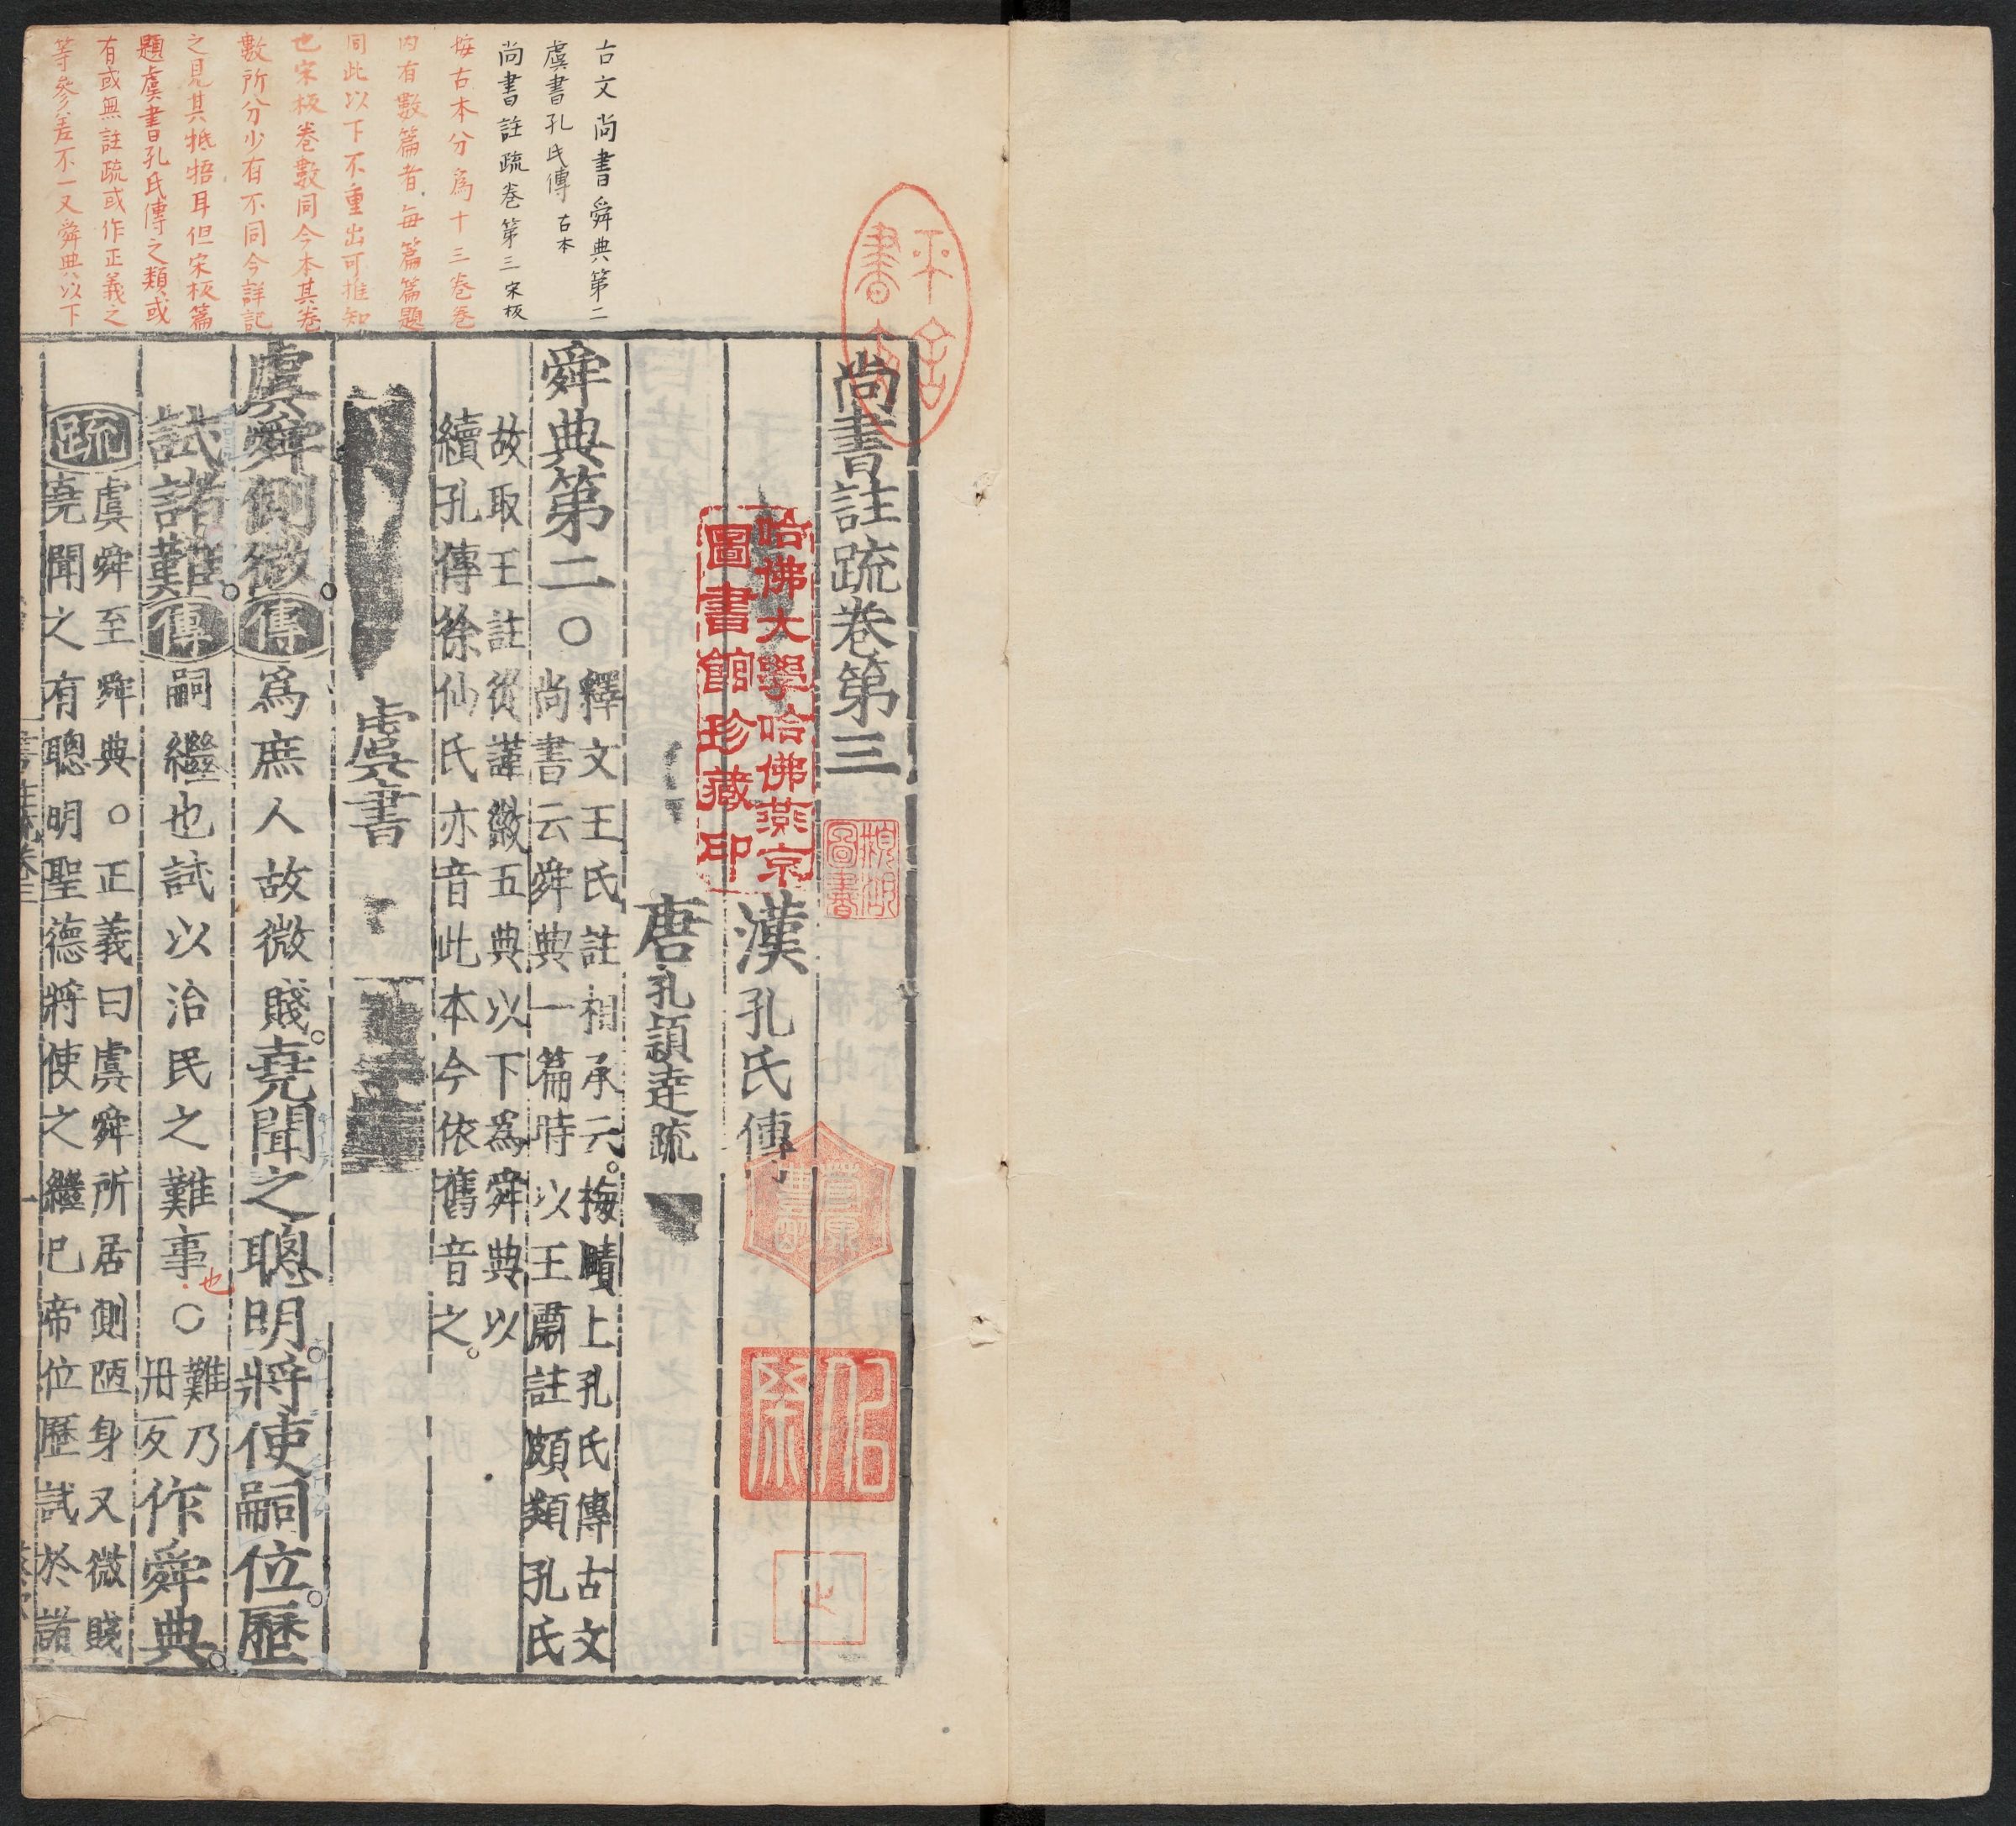 古文尚書舜典第二
虞書孔氏傳 古本
尚書註疏卷第三 宋板
按古本分爲十三卷卷
內有數篇者每篇篇題
同此以下不重出可推知
也宋板卷數同今本其卷
數所分少有不同今詳記
之見其牴牾耳但宋板篇
題虞書孔氏傳之類或
有或無註疏或作正義之
等參差不一又舜典以下
尚書註疏卷第三
漢孔氏傳
唐孔頴達疏
舜典第二○釋文王氏註相承云梅賾上孔氏傳古文
尚書云舜典一篇時以王肅註頗類孔氏
故取王註從謹徽五典以下爲舜典以
續孔傳徐仙民亦音此本今依舊音之
虞書
虞舜側微傳爲庶人故微賤堯聞之聰明將使嗣位歷
試諸難傳嗣繼也試以治民之難事也○難乃
丹反作舜典
疏虞舜至舜典○正義曰虞舜所居側陋身又微賤
堯聞之有聰明聖德將使之繼己帝位歷試於諸
哈佛大學哈佛燕京
圖書館珍藏印
圖書
止